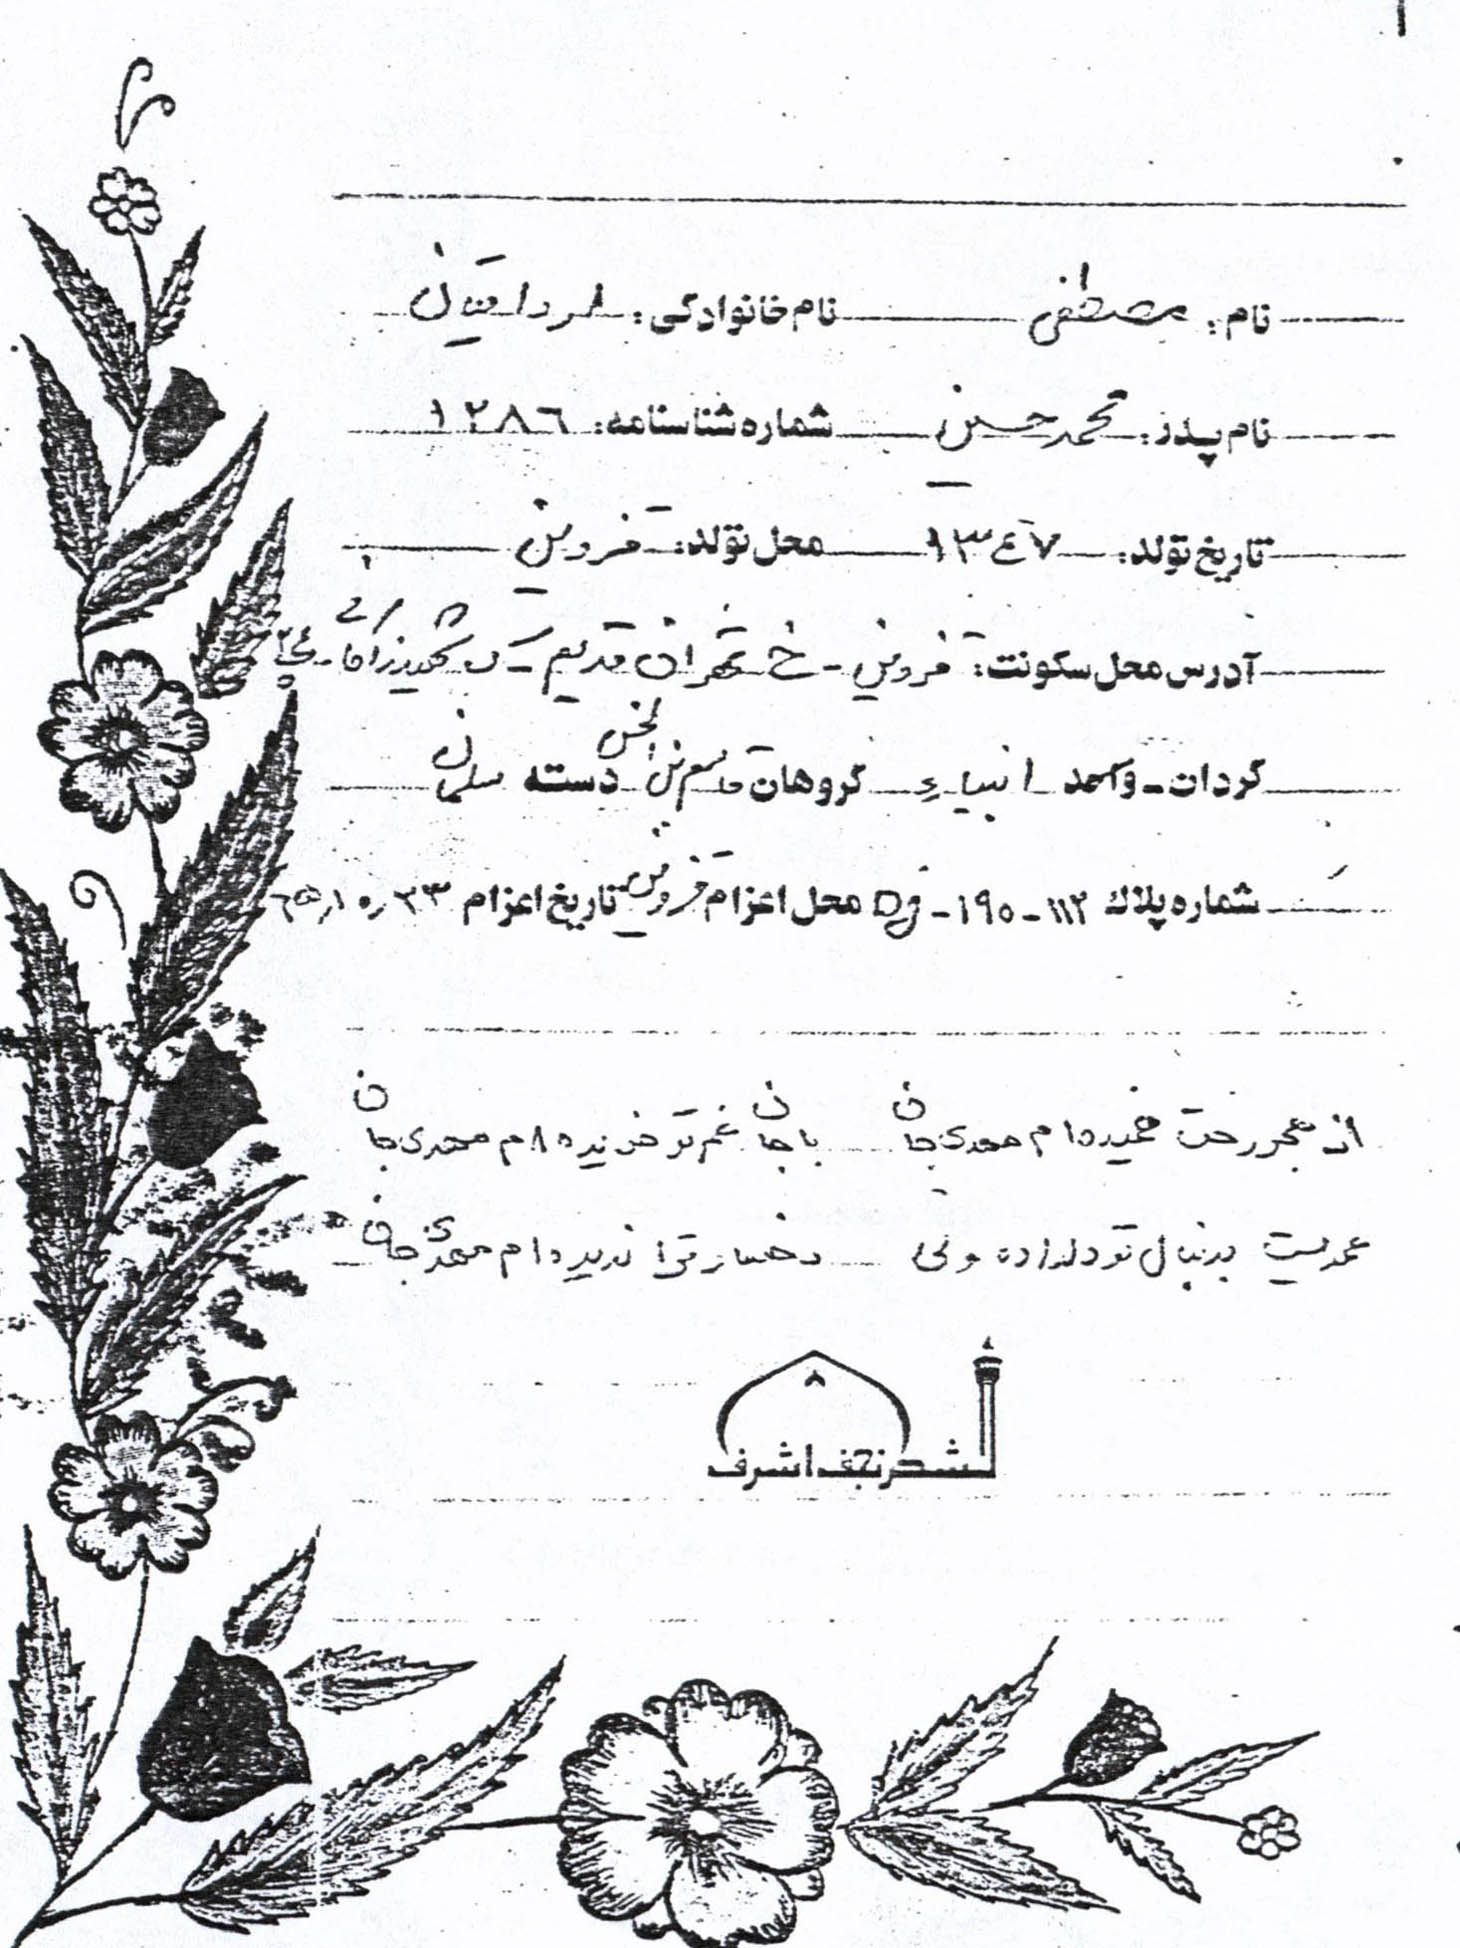 نام: مصطفی نام خانوادگی:
نام پدر: محمد حسین شماره شناسنامه: ۱۲۸۶
تاریخ تولد: ۱۳۴۷ محل تولد: قزوین
آدرس محل سکونت: قزوین - خ تهران قدیم - ک
گردان - واحد انبیاء گروهان قاسم بن الحسن دسته سلمان
شماره پلاک ۱۱۲ - ۱۹۵ - محل اعزام قزوین تاریخ اعزام ۶۵,۱۰,۲۳
از هجر رخت خمیده ام مهدی جان با جان غم تو خریده ام مهدی جان
عمریست بدنبال تو دلداده ولی رخسار ترا ندیده ام مهدی جان
۸
لشکر نجف اشرف